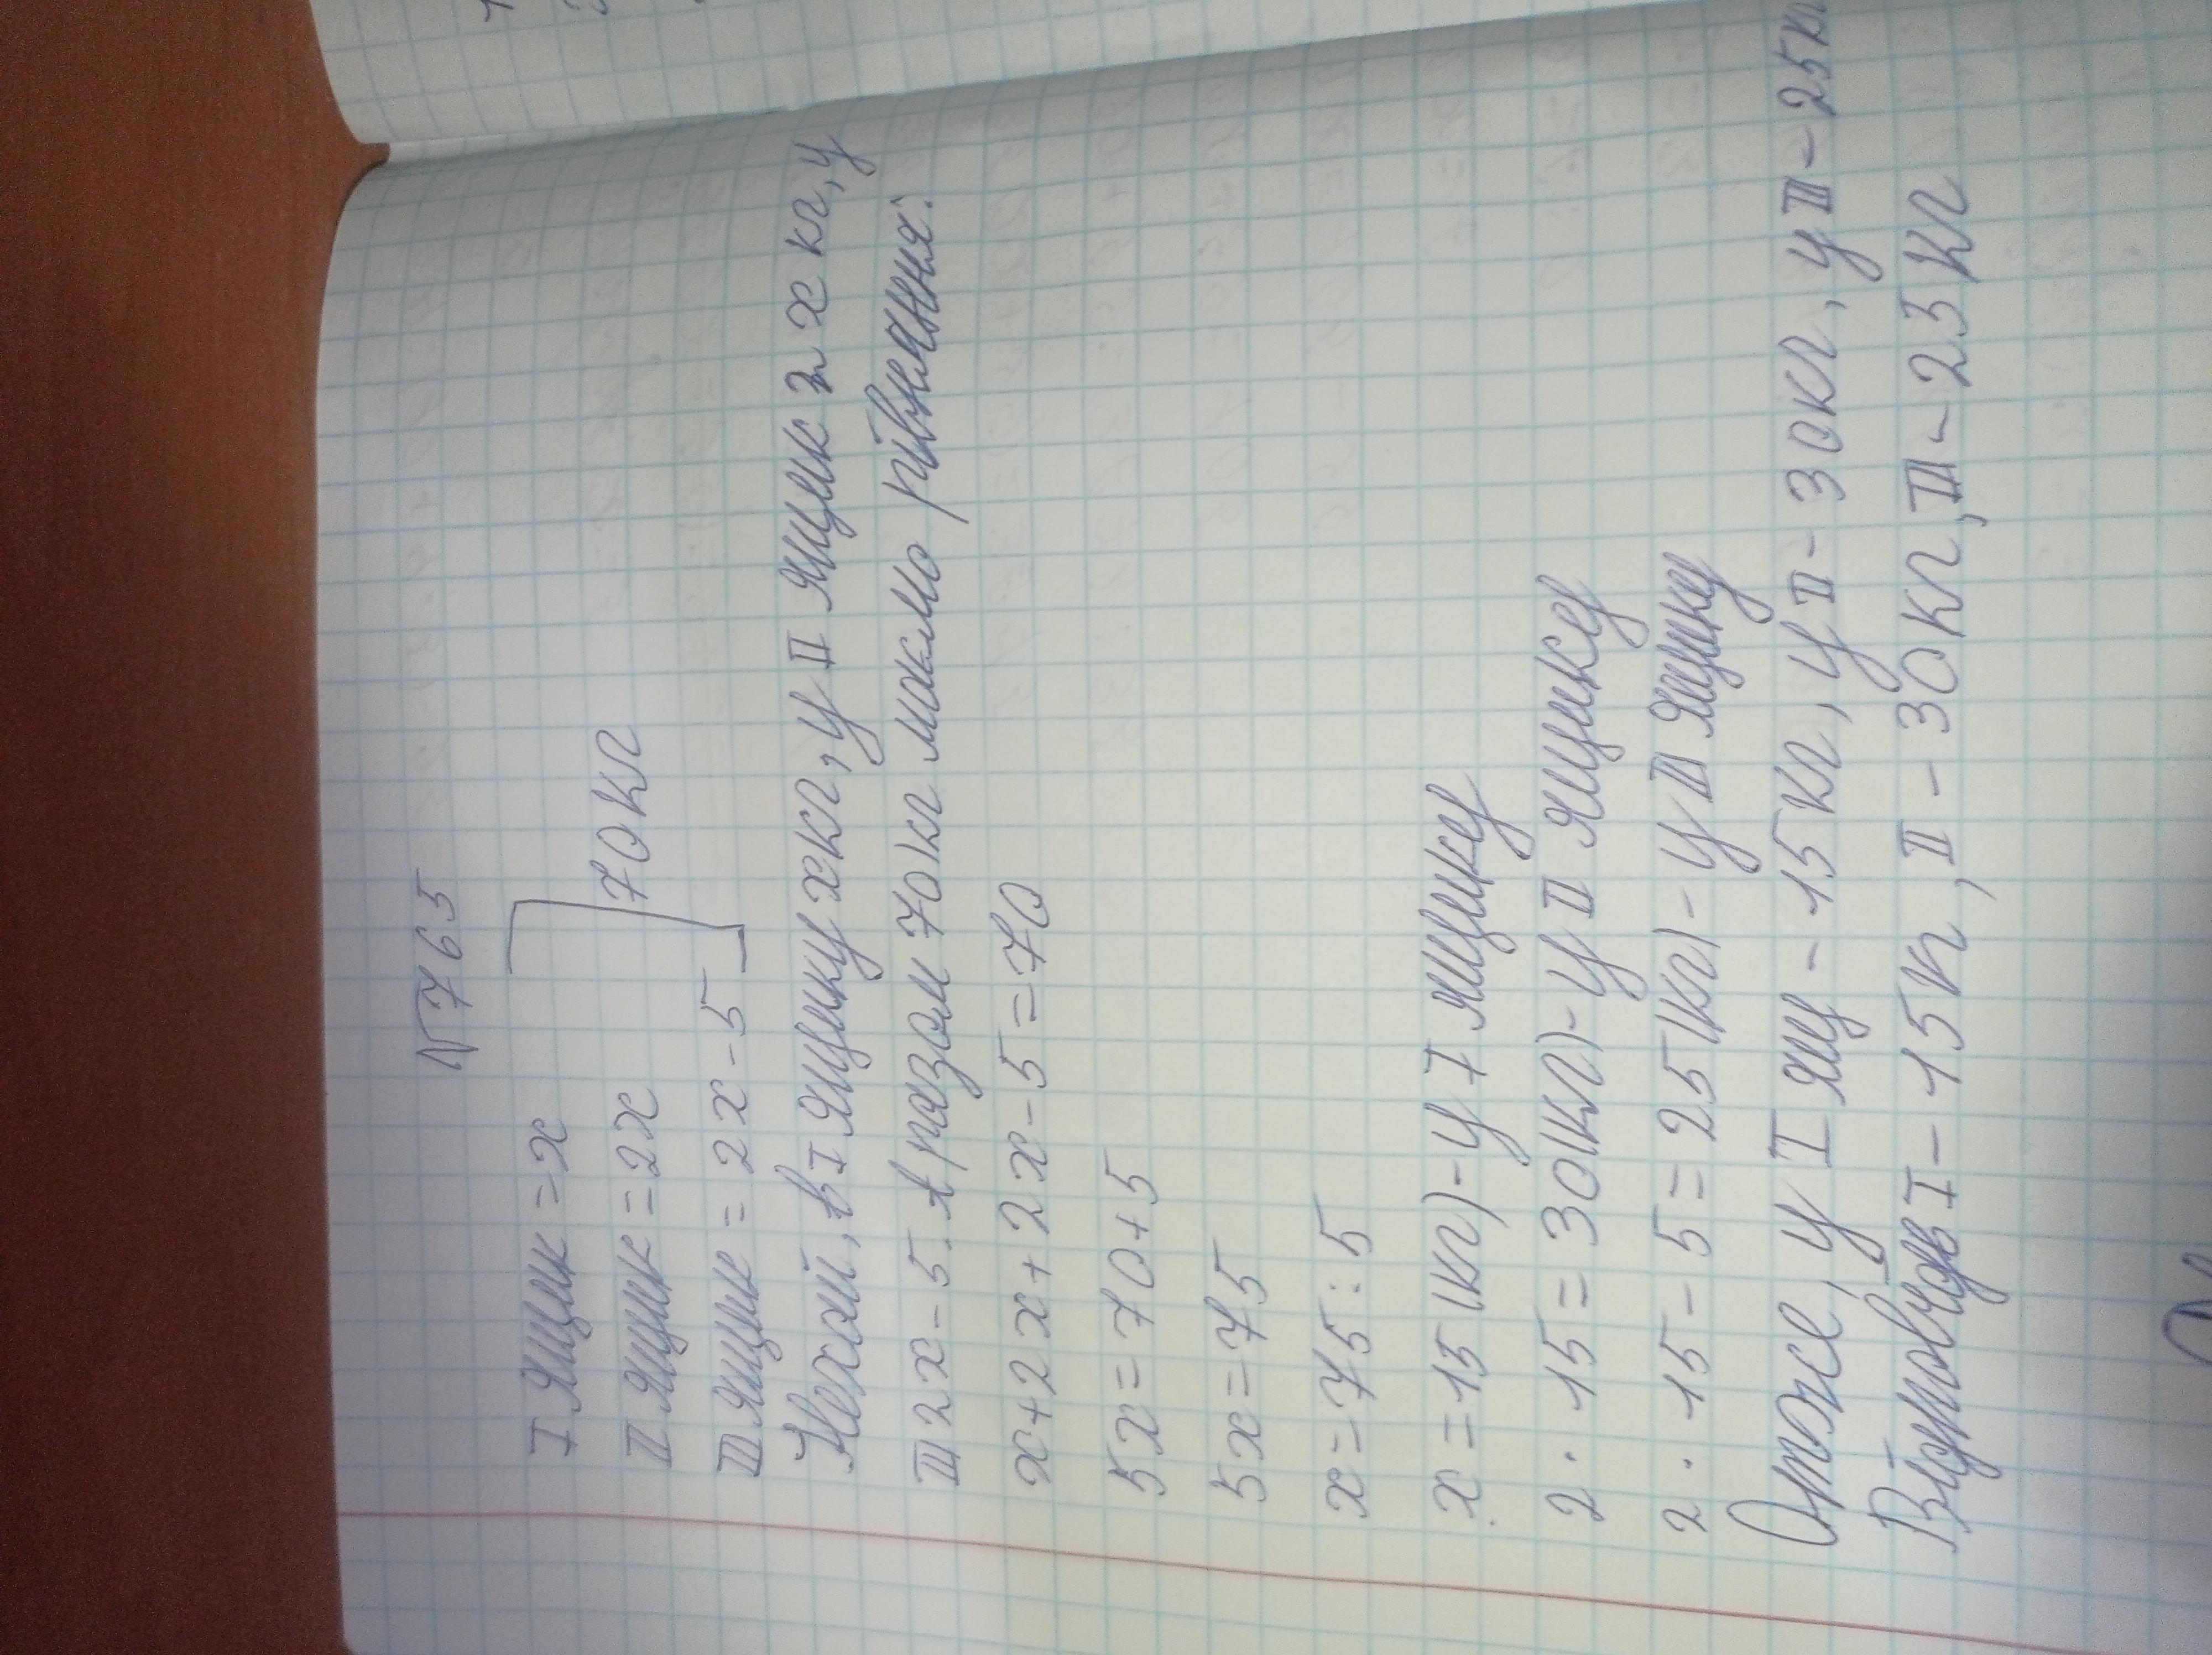 №765
I ящик = х
II ящик = 2х
70кг
III ящик = 2х - 5
Нехай, в I ящику х кг, у II ящик 2 х кг, у
III 2х - 5. А разом 70 кг маємо рівняння:
х + 2х + 2х - 5 = 70
5х = 70 + 5
5х = 75
х = 75 : 5
х = 15 (кг) - у I ящику
2 · 15 = 30 (кг) - у II ящику
2 · 15 - 5 = 25 (кг) - у III ящику
Отже, у I ящ - 15 кг, у II - 30кг, у III - 25кг
Відповідь I - 15кг, II - 30кг, III - 25кг